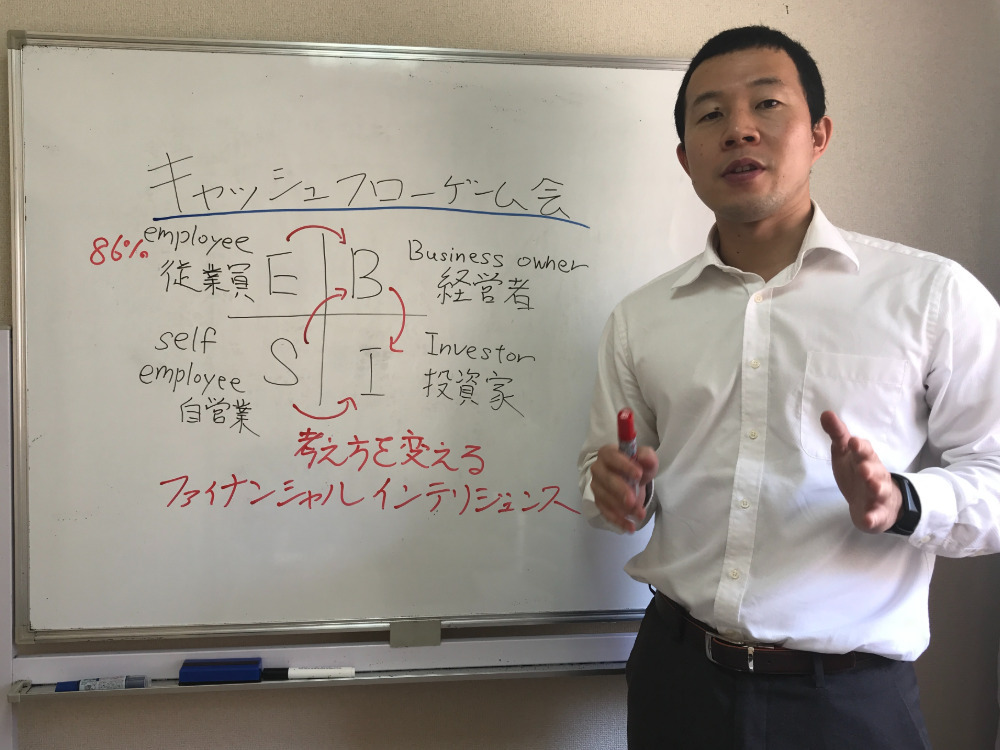 キャッシュフローゲーム会
86% employee
従業員 E
B Business owner
経営者
self
employee
自営業 S
I Investor
投資家
考え方を変える
ファイナンシャルインテリジェンス